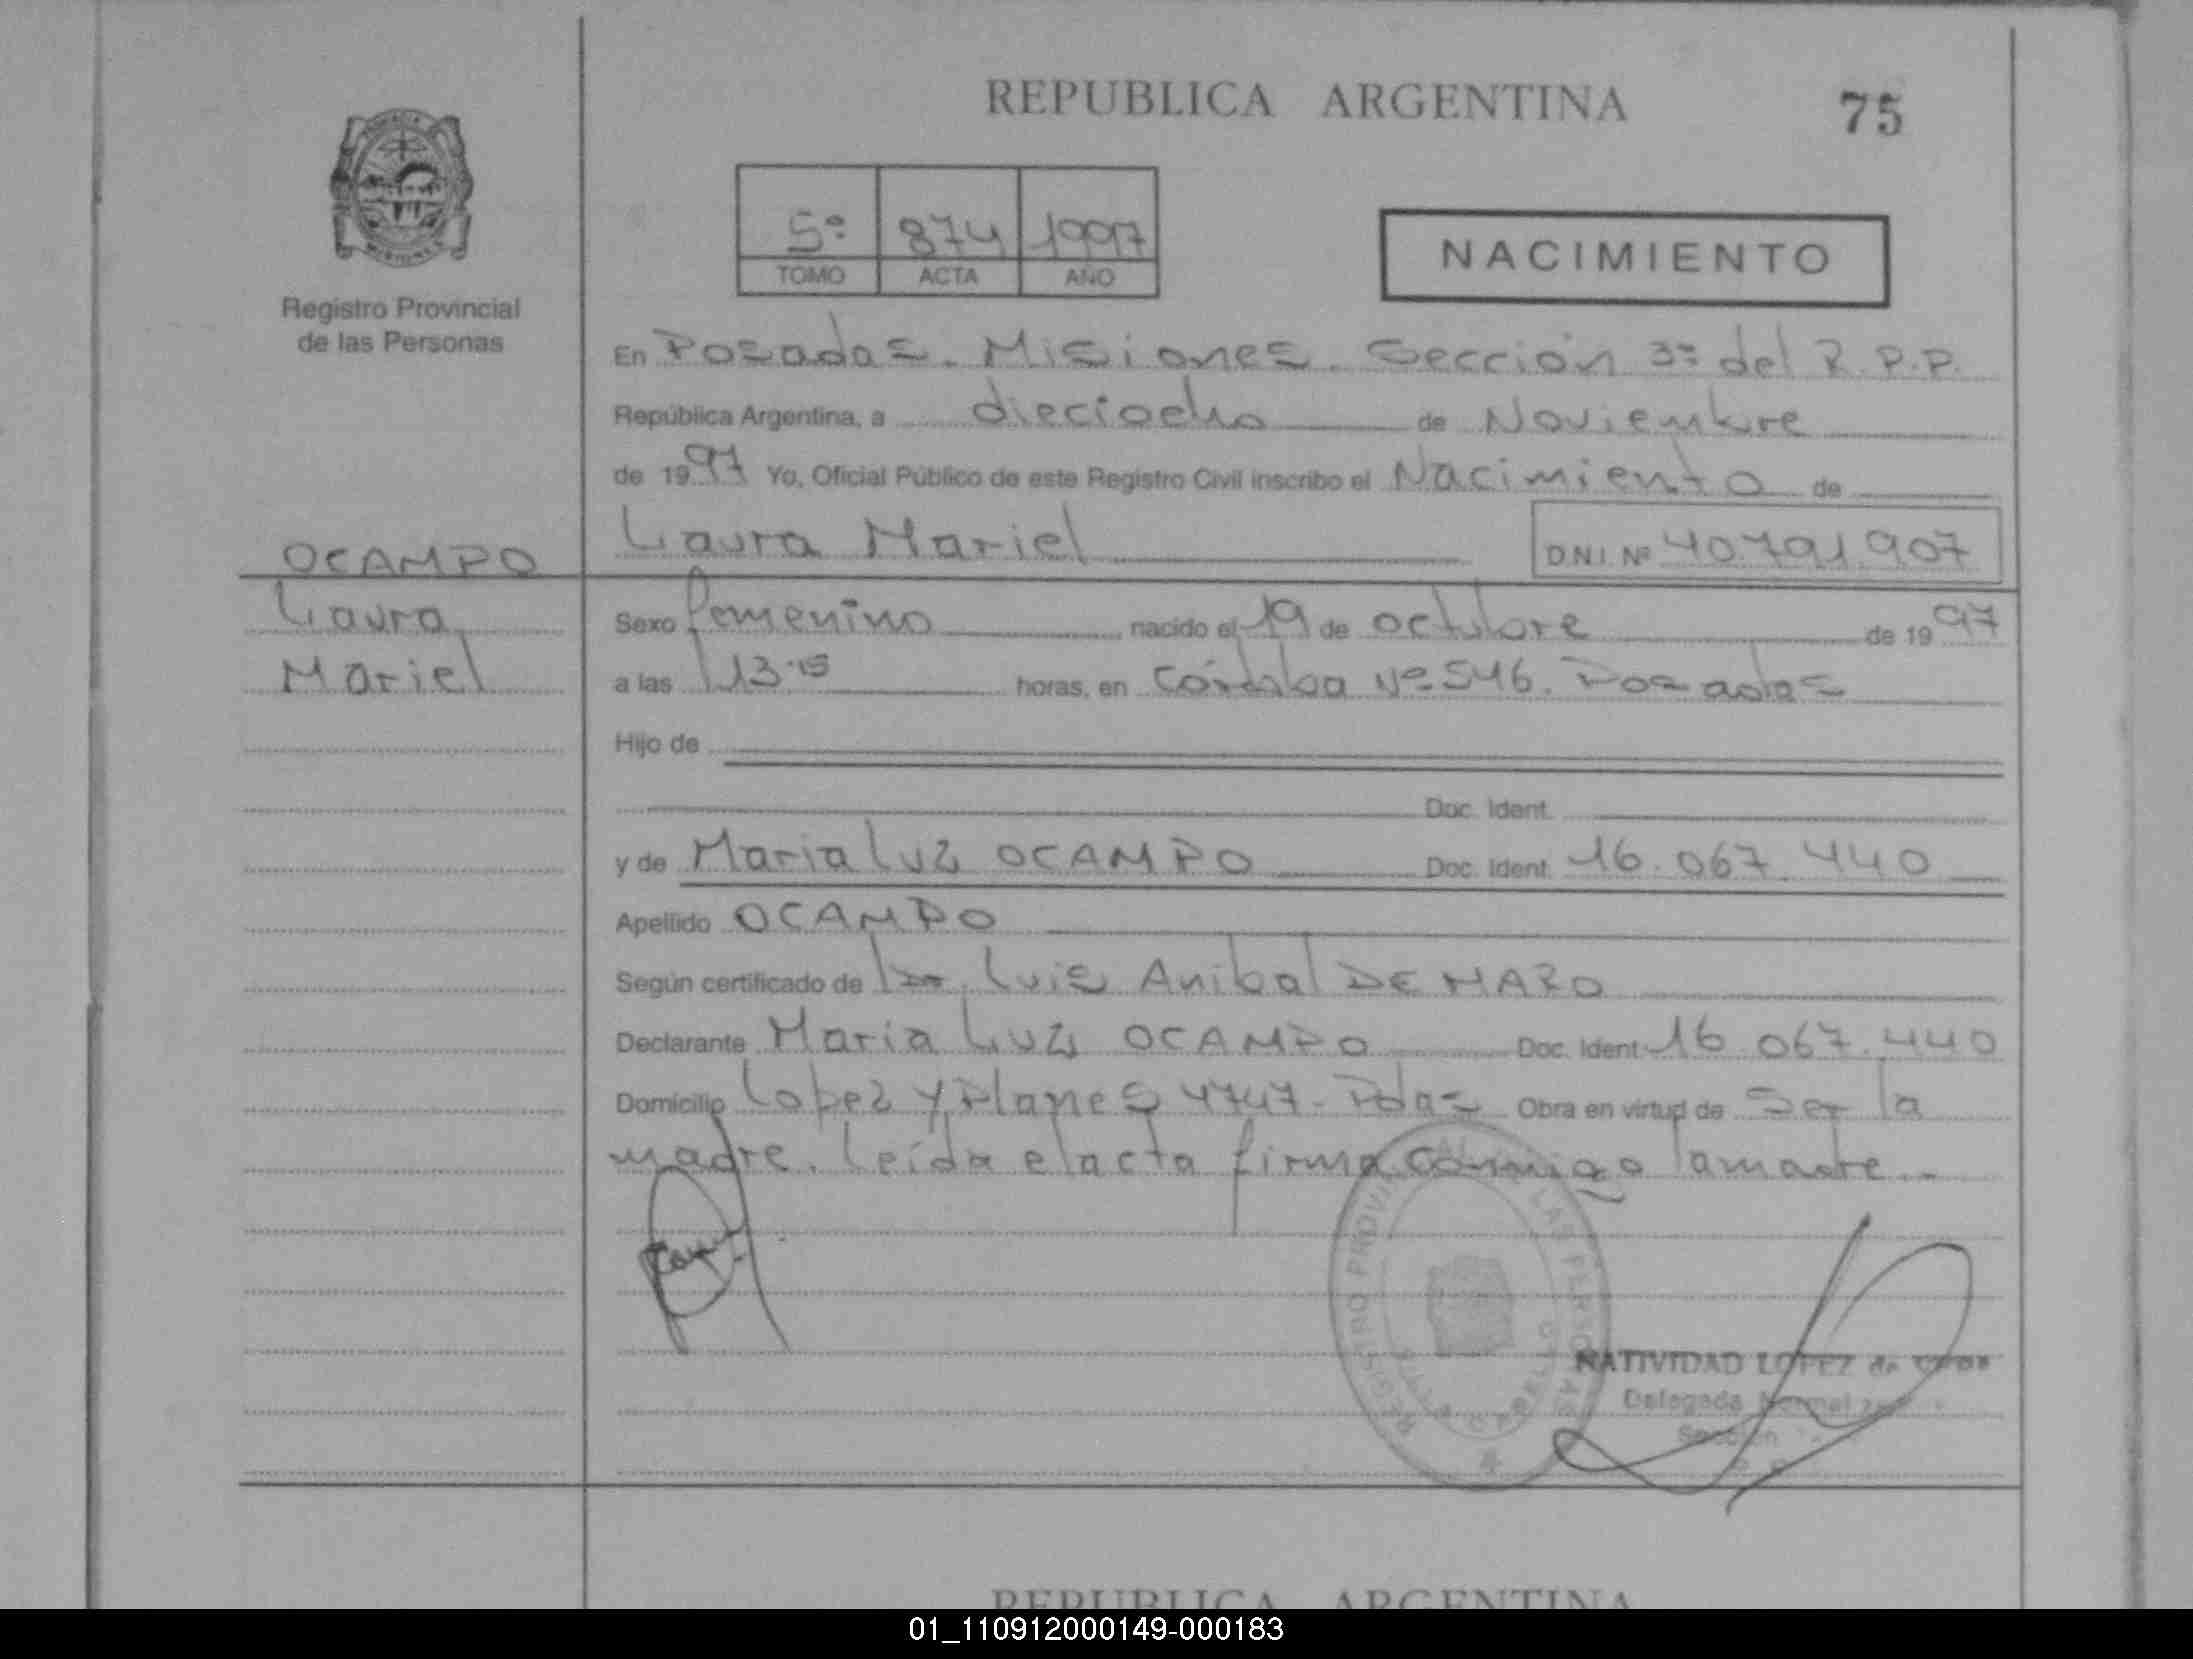 REPUBLICA ARGENTINA
75
5º 874 1997
TOMO ACTA AÑO
NACIMIENTO
Registro Provincial
de las Personas
En Posadas. Misiones. Sección 3ª del R.P.P.
República Argentina, a dieciocho de Noviembre
de 1997 Yo, Oficial Público de este Registro Civil inscribo el Nacimiento de
Laura Mariel D.N.I. Nº 40.791.907
OCAMPO
Laura
Mariel
Sexo femenino nacido el 19 de octubre de 1997
a las 13.15 horas, en Córdoba Nº 546. Posadas
Hijo de
Doc. Ident.
y de Maria Luz OCAMPO Doc. Ident. 16.067.440
Apellido OCAMPO
Según certificado de Dr. Luis Anibal DE MARO
Declarante Maria Luz OCAMPO Doc. Ident. 16.067.440
Domicilio Lopez y Planes 4747 - Pdas Obra en virtud de Ser la
madre. Leída el acta firma conmigo la madre.-
REGISTRO PROVINCIAL DE LAS PERSONAS
NATIVIDAD LOPEZ de
Delegada Normal
Sección
REPUBLICA ARGENTINA
01_110912000149-000183